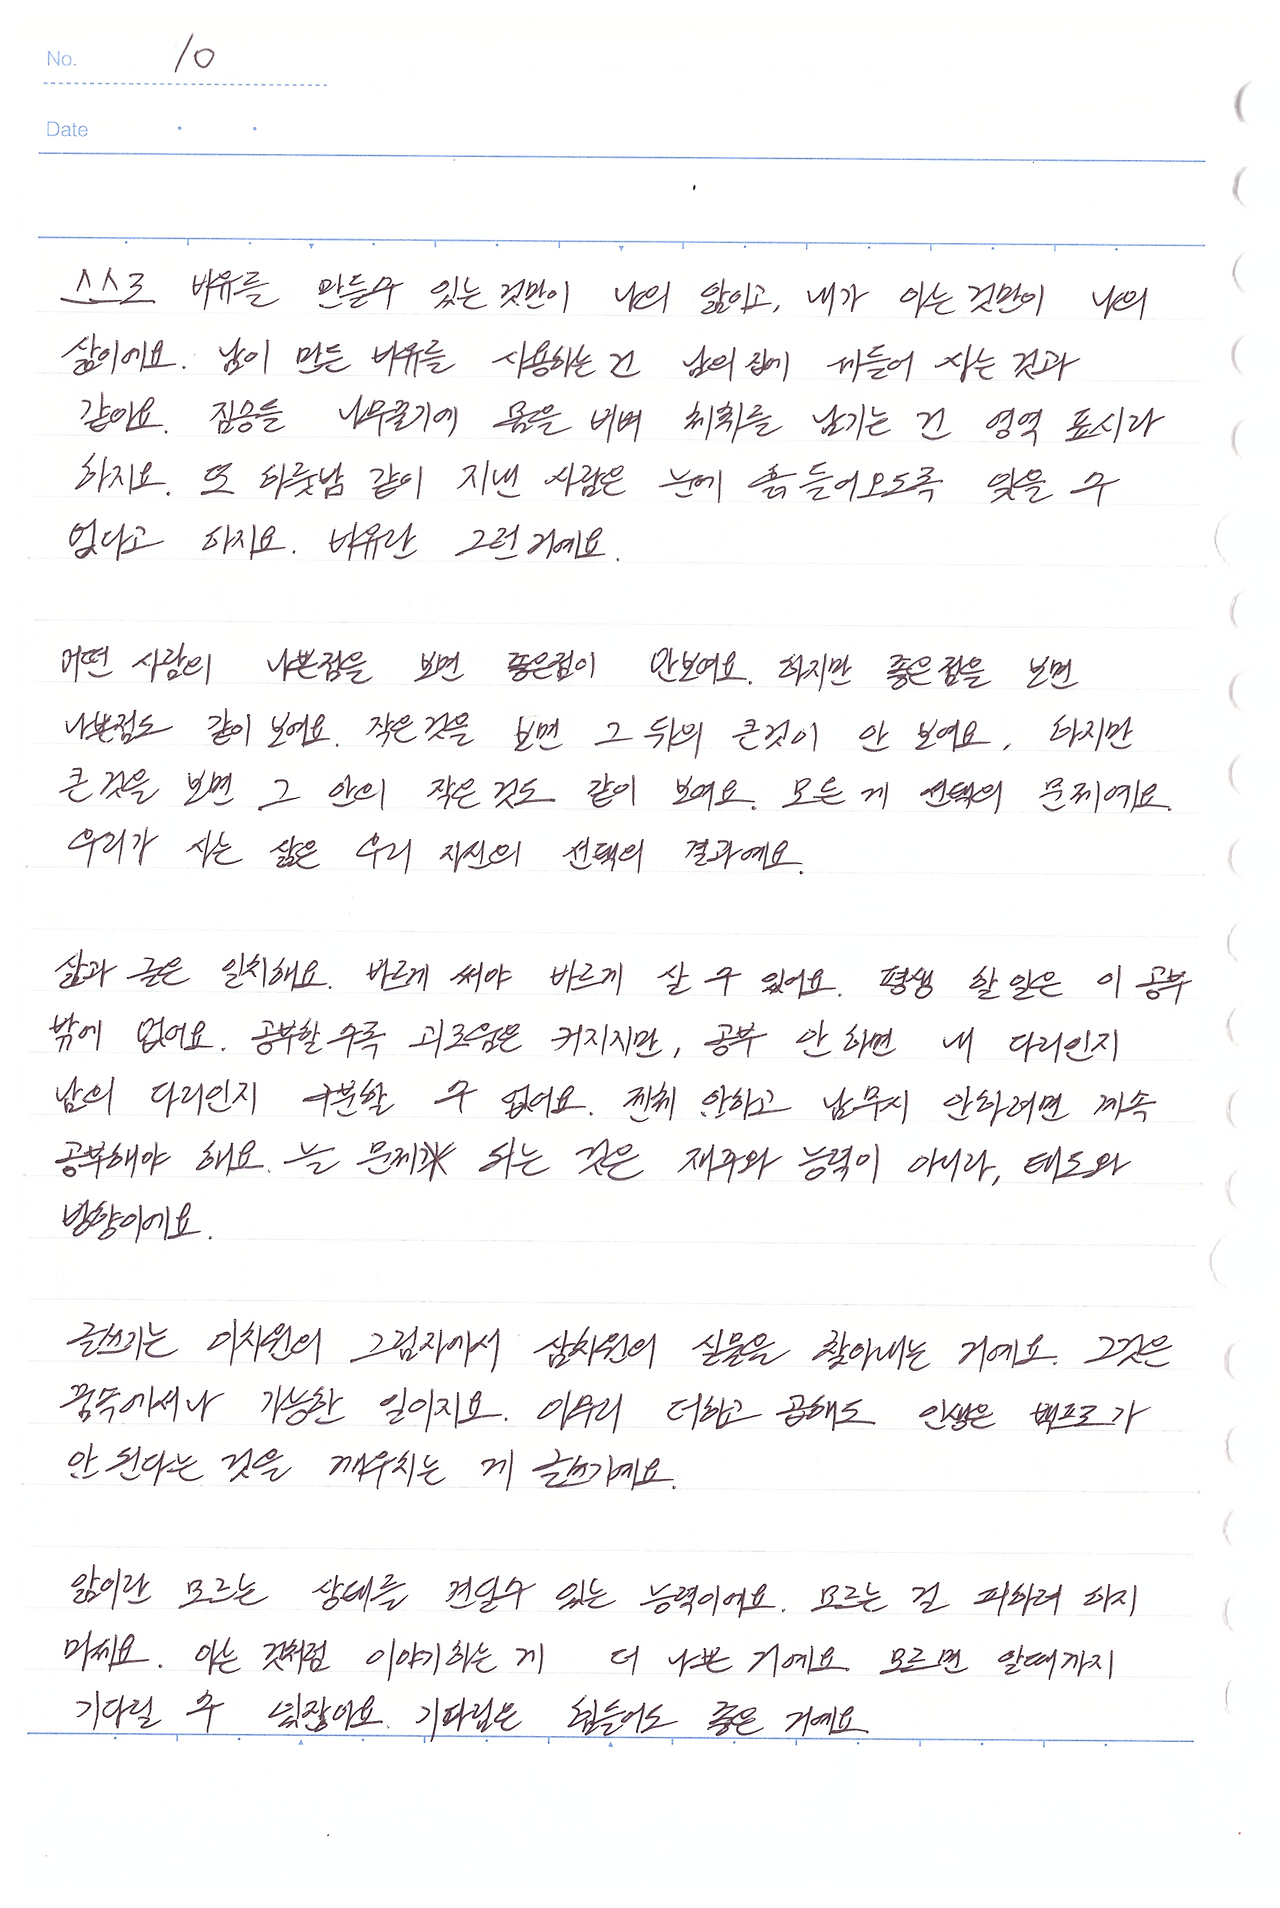 No. 10
Date
스스로 비유를 만들수 있는 것만이 나의 앎이고, 내가 아는 것만이 나의
삶이에요. 남이 만든 비유를 사용하는 건 남의 집에 세들어 사는 것과
같아요. 짐승들 나무줄기에 몸을 비벼 체취를 남기는 건 영역 표시라
하지요. 또 하룻밤 같이 지낸 사람은 눈에 흙 들어오도록 잊을 수
없다고 하지요. 비유란 그런 거예요.
어떤 사람의 나쁜점을 보면 좋은점이 안보여요. 하지만 좋은점을 보면
나쁜점도 같이 보여요. 작은것을 보면 그 뒤의 큰것이 안 보여요. 하지만
큰것을 보면 그 안의 작은것도 같이 보여요. 모든 게 선택의 문제예요.
우리가 사는 삶은 우리 자신의 선택의 결과예요.
삶과 글은 일치해요. 바르게 써야 바르게 살 수 있어요. 평생 할 일은 이 공부
밖에 없어요. 공부할수록 괴로움은 커지지만, 공부 안 하면 내 다리인지
남의 다리인지 구분할 수 없어요. 전체 안하고 남무시 안하려면 계속
공부해야 해요. 늘 문제 되는 것은 재주와 능력이 아니라, 태도와
방향이에요.
글쓰기는 이차원의 그림자에서 삼차원의 실물을 찾아내는 거예요. 그것은
꿈속에서나 가능한 일이지요. 아무리 더하고 곱해도 인생은 백프로가
안 된다는 것을 깨우치는 게 글쓰기예요.
앎이란 모르는 상태를 견딜수 있는 능력이에요. 모르는 걸 피하려 하지
마세요. 아는 것처럼 이야기하는 게 더 나쁜 거예요. 모르면 알때까지
기다릴 수 있잖아요. 기다림은 힘들어도 좋은 거예요